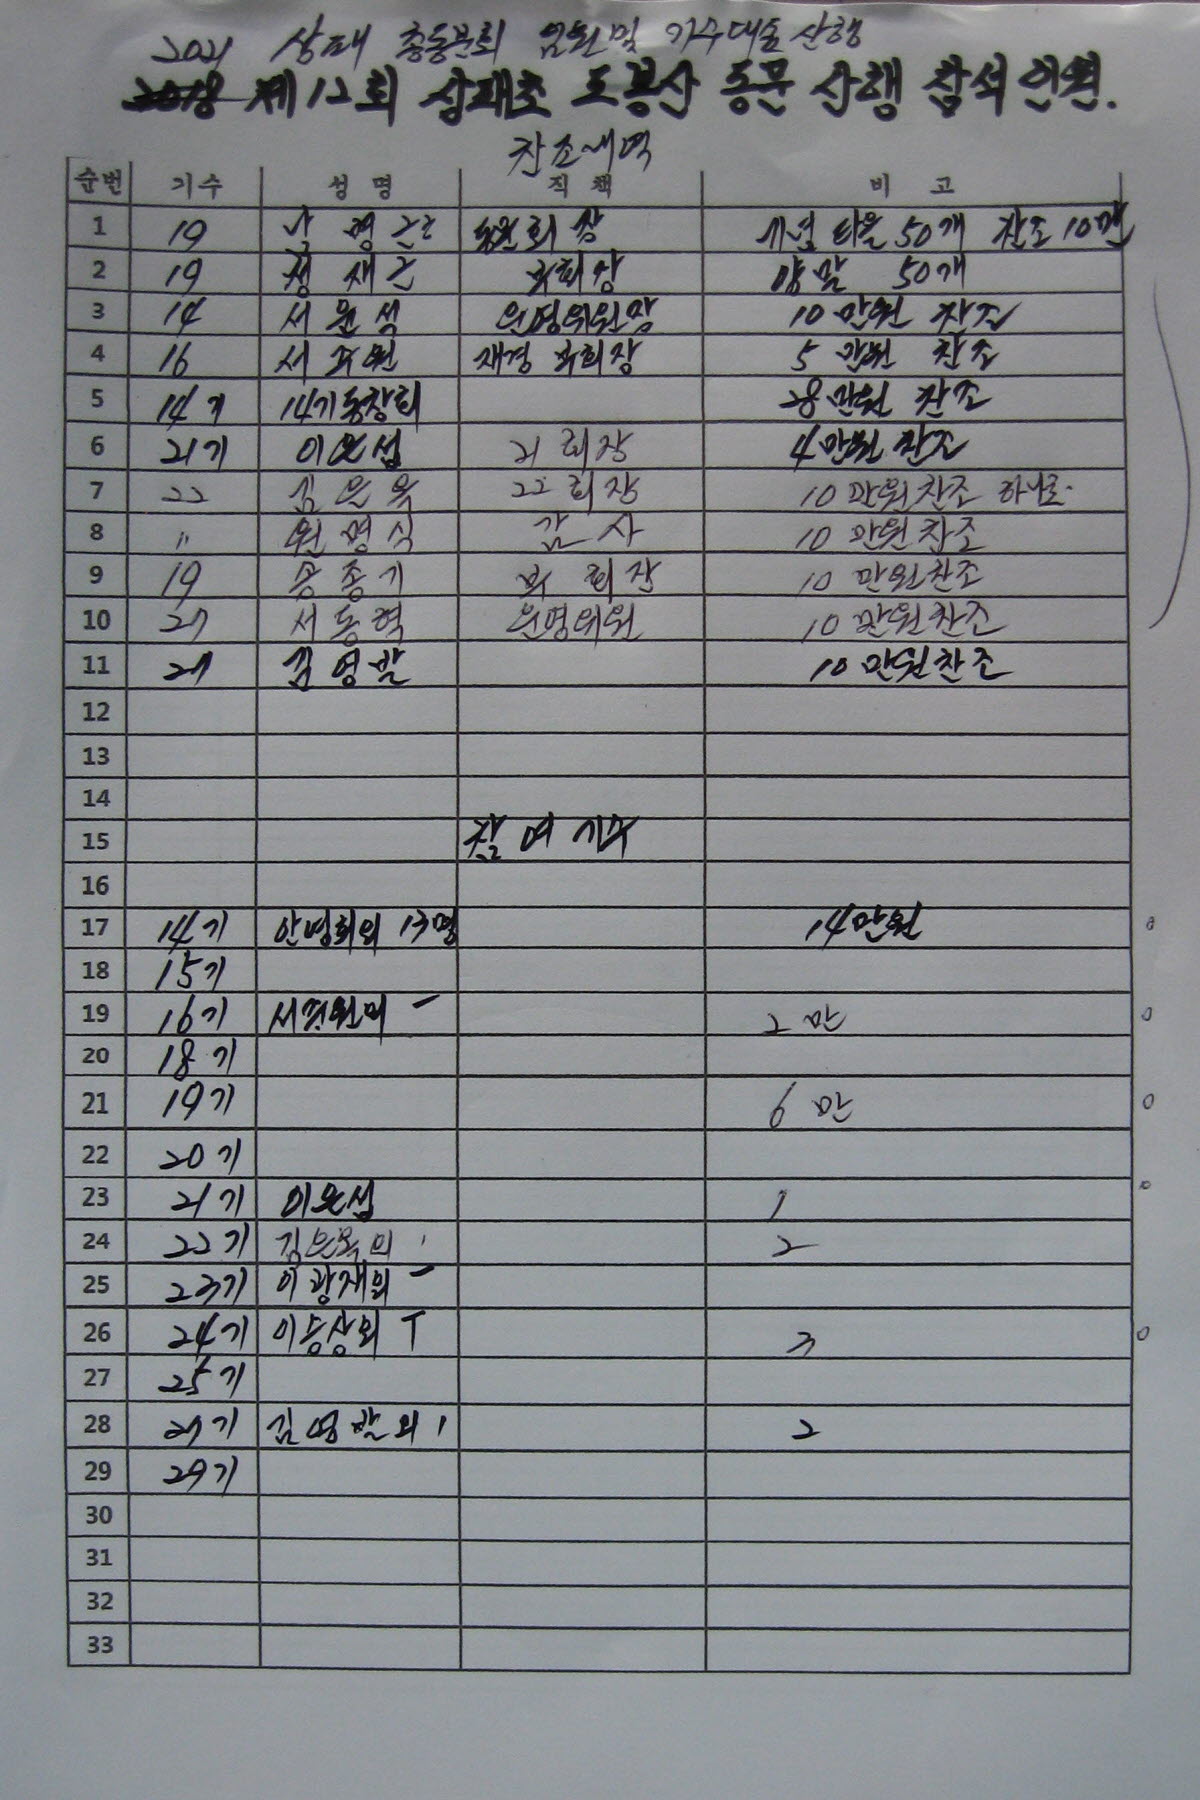 2021 상패 총동문회 임원 및 기수대술 산행
2018 제12회 상패초 도봉산 동문 산행 참석 인원.
찬조내역
순번 기수 성명 직책 비고
1 19 남 형 근 회장 기념 타올 50개 찬조 10만
2 19 정 재 근 부회장 양말 50개
3 14 서 윤 석 운영위원장 10만원 찬조
4 16 서 원 재경 부회장 5만원 찬조
5 14기 14기동창회 28만원 찬조
6 21기 이은섭 21회장 4만원 찬조
7 22 김 은 옥 22회장 10만원찬조
8 〃 원 명 식 감 사 10만원찬조
9 19 송 종 기 부 회장 10만원찬조
10 27 서 동 혁 운영위원 10만원찬조
11 27 김 영 발 10만원찬조
12
13
14
15 참여기수
16
17 14기 안명회외 13명 14만원
18 15기
19 16기 외 - 2만
20 18기
21 19기 6만
22 20기
23 21기 이은섭 1
24 22기 김은옥외 1 2
25 23기 이광재외 -
26 24기 이승상외 T 3
27 25기
28 27기 김영발외 1 2
29 29기
30
31
32
33